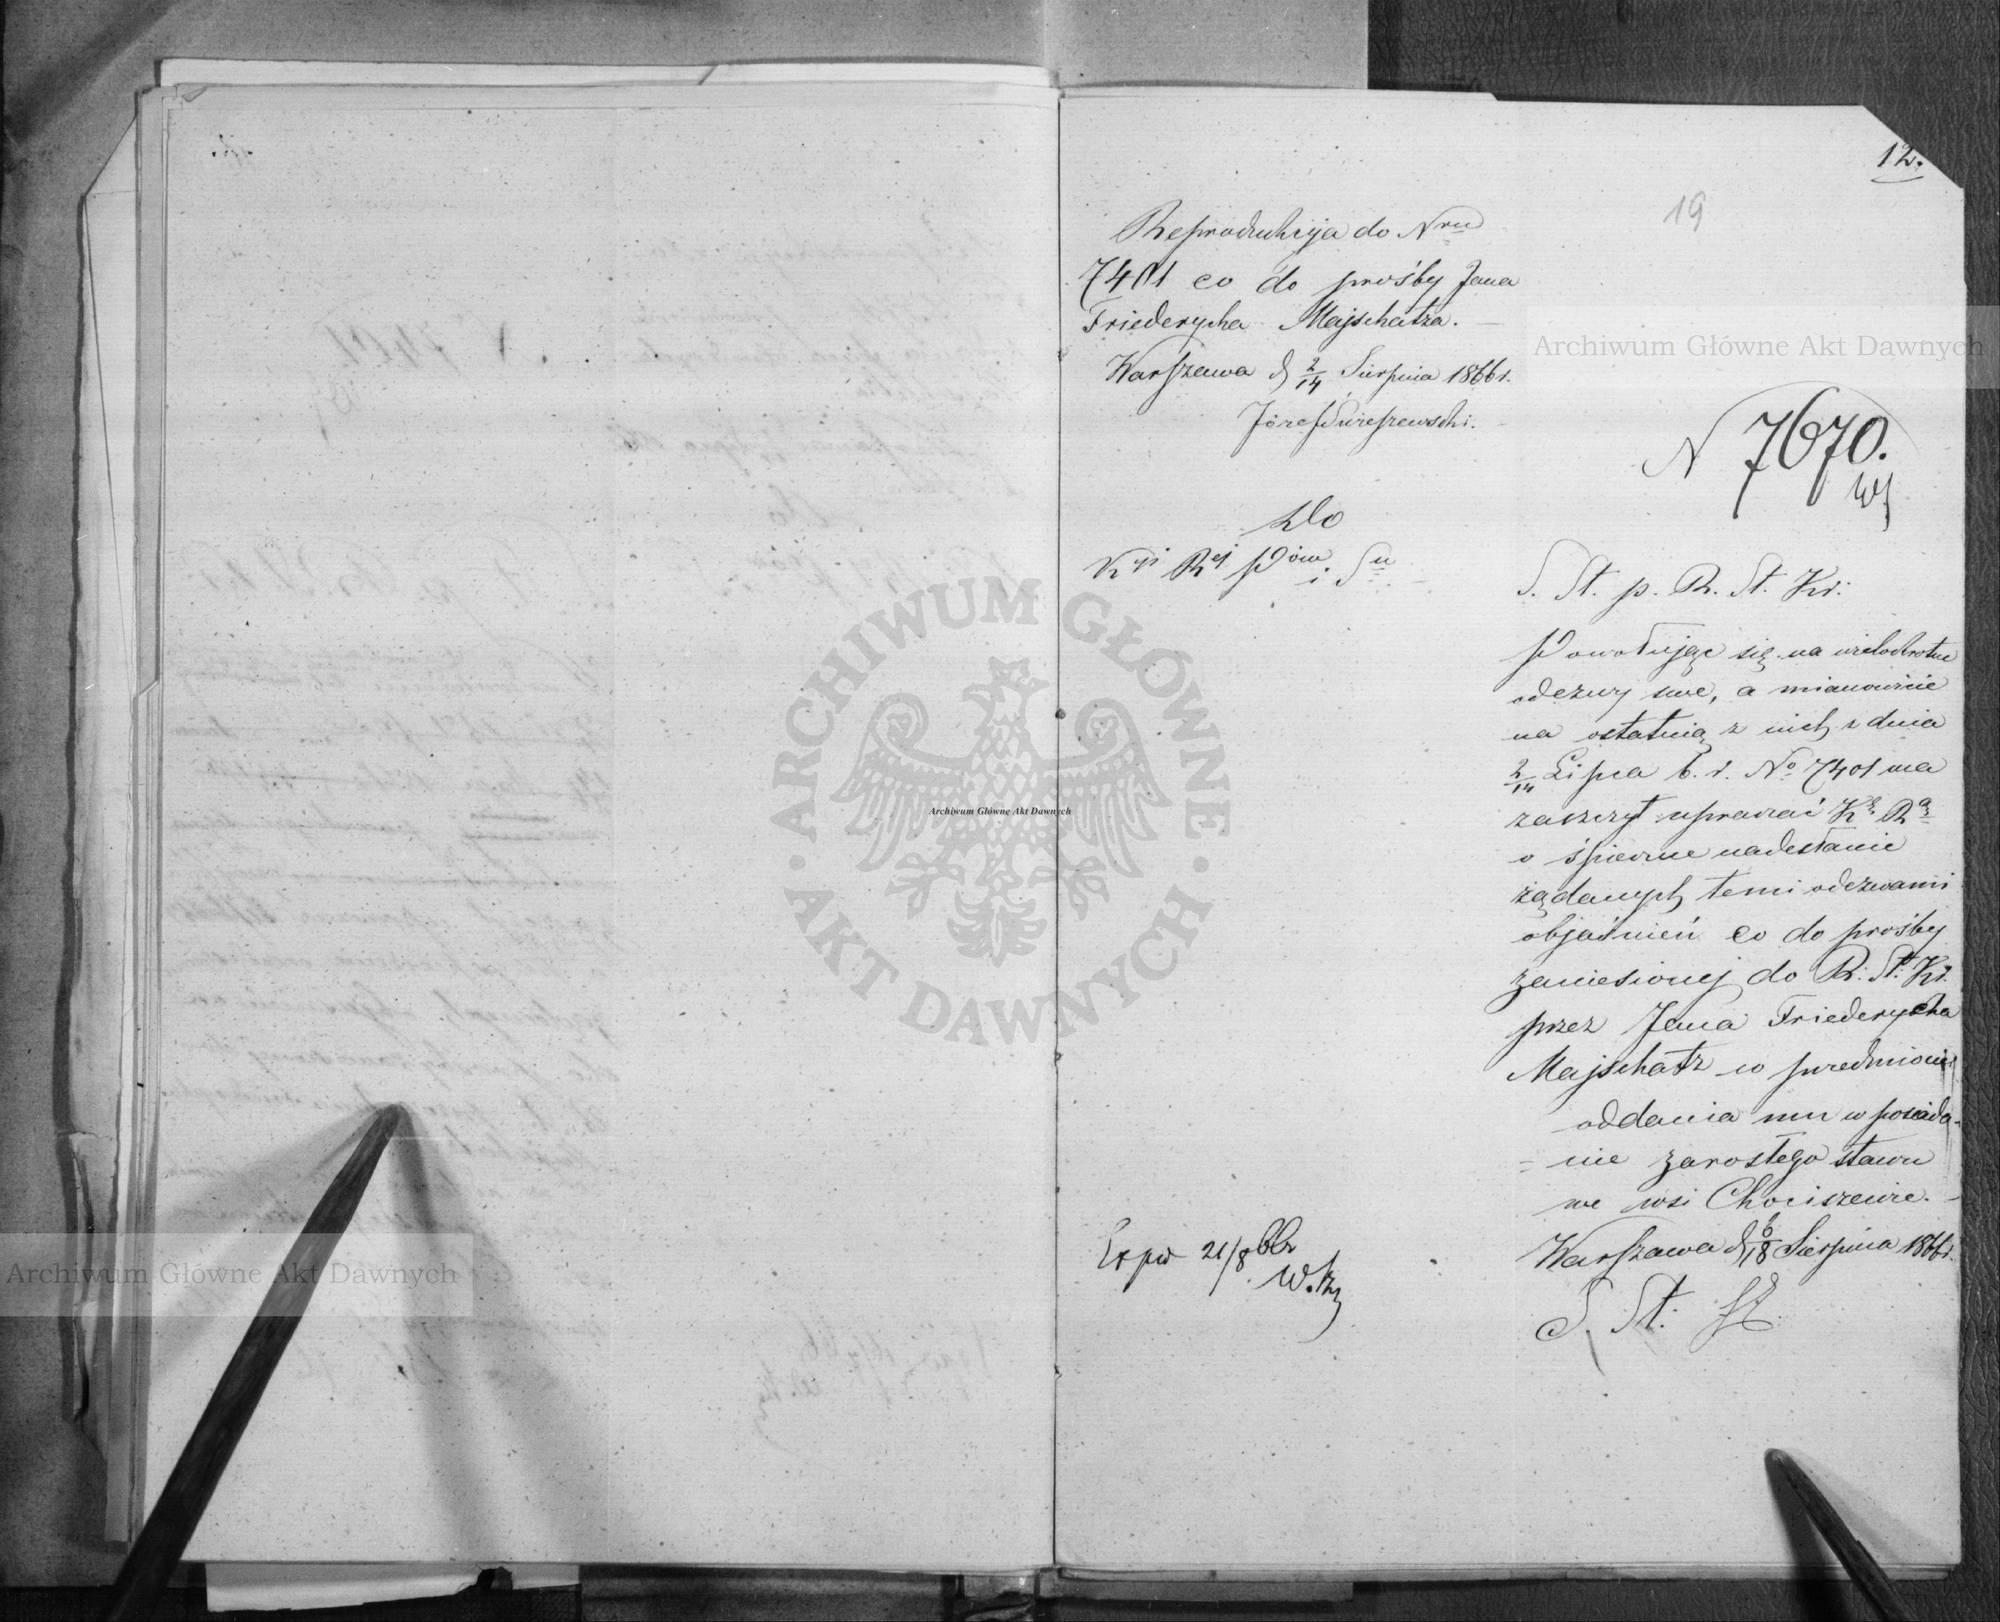 12.
19
Reprodukcija do Nru
7401 co do prośby Jana
Friederycha Majschatza.
Warszawa d 2/14 Sierpnia 1866 r.
Józef
N 7670.
Do
Kyi Rej
i Su
S. St. p. R. St. Kr.
Powołując się na wielokrotne
odezwy swe, a mianowicie
na ostatnią z nich z dnia
2/14 Lipca b. r. No 7401 ma
zaszczyt upraszać Kę Rą
o śpieszne nadesłanie
żądanych temi odezwami
objaśnień co do prośby
zaniesionej do R. St. Kr.
przez Jana Friederycha
Majschatz w przedmiocie
oddania mu w posiada-
nie zarosłego stawu
we wsi Chociszewie.
Warszawa d 6/18 Sierpnia 1866 r.
S. St.
Exped 21/8 66
Archiwum Główne Akt Dawnych
Archiwum Główne Akt Dawnych
Archiwum Główne Akt Dawnych
ARCHIWUM GŁÓWNE · AKT DAWNYCH ·